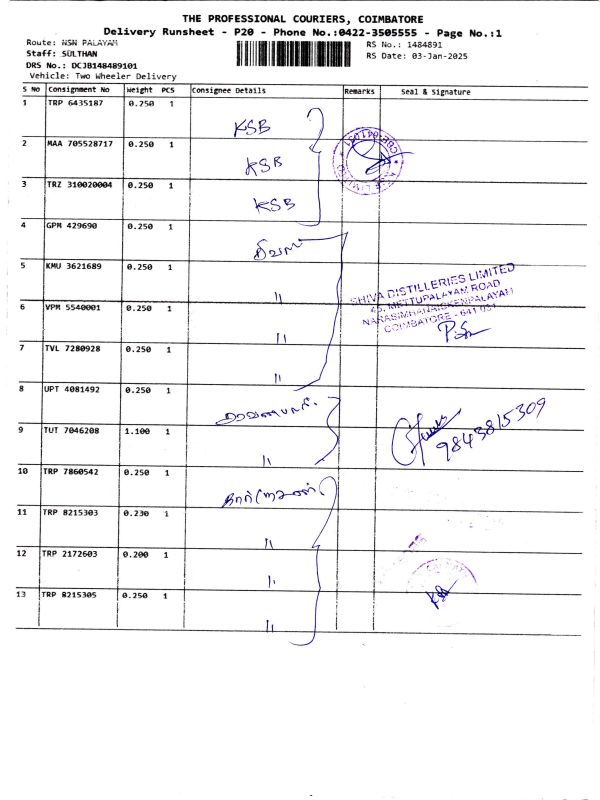 THE PROFESSIONAL COURIERS, COIMBATORE
Delivery Runsheet - P20 - Phone No.:0422-3505555 - Page No.:1
Route: NSN PALAYAM
RS No.: 1484891
Staff: SULTHAN
RS Date: 03-Jan-2025
DRS No.: DCJB148489101
Vehicle: Two Wheeler Delivery
S No Consignment No Weight PCS Consignee Details Remarks Seal & Signature
1 TRP 6435187 0.250 1
KSB
2 MAA 705528717 0.250 1
KSB
3 TRZ 310020004 0.250 1
KSB
4 GPM 429690 0.250 1
5 KMU 3621689 0.250 1
"
SHIVA DISTILLERIES LIMITED
METTUPALAYAM ROAD
NARASIMHANAICKENPALAYAM
COIMBATORE - 641 031
6 VPM 5540001 0.250 1
"
7 TVL 7280928 0.250 1
"
8 UPT 4081492 0.250 1
9843815309
9 TUT 7046208 1.100 1
"
10 TRP 7860542 0.250 1
11 TRP 8215303 0.230 1
"
12 TRP 2172603 0.200 1
"
13 TRP 8215305 0.250 1
"